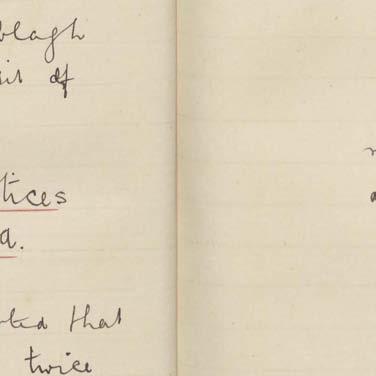 blagh
sit of
tices
a.
oted that
twice